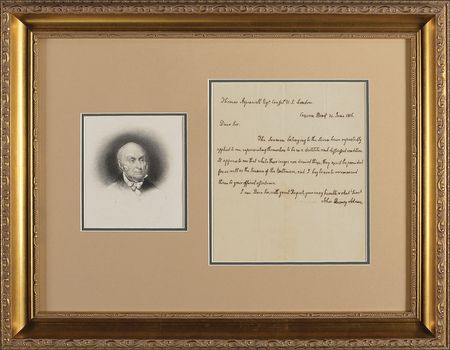 Thomas Aspinwall Esqr Consul U.S. London
Craven Street 21 June 1816.
Dear Sir.
The Seamen belonging to the have been repeatedly
applied to me, representing themselves to be in a destitute and distressed condition
It appears to me that while their wages are denied them, they must be provided
for as well as the Seamen of the and I beg leave to recommend
them to your official attention.
I am Dear Sir, with great Respect, your very humble & obedt Servt
John Quincy Adams.